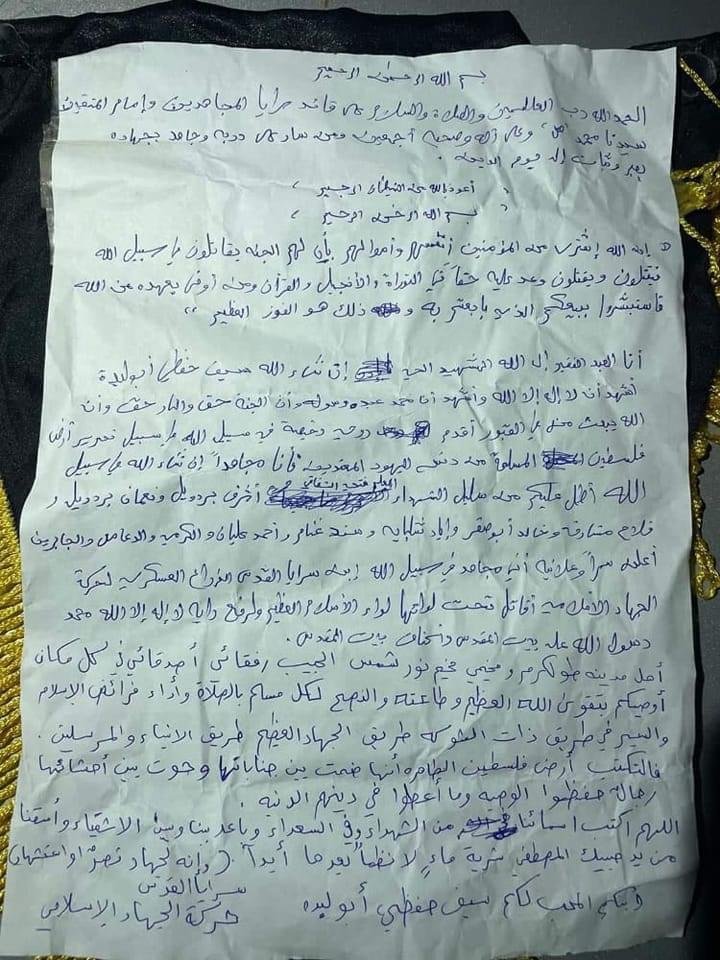 بسم الله الرحمن الرحيم
الحمد لله رب العالمين والصلاة والسلام على قائد سرايا المجاهدين وإمام المتقين
سيدنا محمد وعلى آله وصحبه أجمعين ومن سار على دربه وجاهد بجهاده
إلى يوم الدين .
أعوذ بالله من الشيطان الرجيم ،
بسم الله الرحمن الرحيم ،
إن الله إشترى من المؤمنين أنفسهم وأموالهم بأن لهم الجنة يقاتلون في سبيل الله
فيقتلون ويقتلون وعد عليه حقاً في التوراة والأنجيل والقرآن ومن أوفى بعهده من الله
فاستبشروا ببيعكم الذي بايعتم به و ذلك هو الفوز العظيم ،،
أنا العبد الفقير إلى الله الشهيد الحي إن شاء الله سيف حفظي أبو لبدة
أشهد أن لا إله إلا الله وأشهد أن محمد عبده ورسوله وأن الجنة حق والنار حق وأن
الله يبعث من في القبور أقدم روحي رخيصة في سبيل الله في سبيل تحرير أرض
فلسطين المسلمة من دنس اليهود المعتدين فأنا مجاهداً إن شاء الله في سبيل
الله أطل عليكم من الشهداء فتحي الشقاقي أشرف بردويل ونعمان بردويل و
فلاح مشارقة وخالد أبو صقر وإياد وسند غنام وأحمد عليان والكرمي والدعاس والجابرين
أعلنه سراً وعلانية أني مجاهد في سبيل الله إبن سرايا القدس الذراع العسكري لحركة
الجهاد الإسلامي أقاتل تحت لوائها لواء الأسلام العظيم ولرفع راية لا إله إلا الله محمد
رسول الله على بيت المقدس وأكناف بيت المقدس .
أهل مدينة طولكرم و مخيم نور شمس الحبيب رفقائي أصدقائي في كل مكان
أوصيكم بتقوى الله العظيم وطاعته والنصح لكل مسلم بالصلاة وأداء فرائض الإسلام
والسير في طريق ذات الشوكة طريق الجهاد العظيم طريق الانبياء والمرسلين .
فالتكتب أرض فلسطين الطاهرة أنها ضمت بين جنباتها وحوت بين أحشائها
رجالاً حفظوا الوصية وما أعطوا في دينهم الدنية .
اللهم اكتب اسمائنا من الشهداء وفي السعداء وباعد بيننا وبين الاشقياء وأسقنا
من يد حبيبك المصطفى شربة ماءٍ لا نظمأ بعدها أبداً ( وإنه لجهاد نصرٌ او استشهاد
سرايا القدس
إبنكم المحب لكم سيف حفظي أبو لبده حركة الجهاد الإسلامي